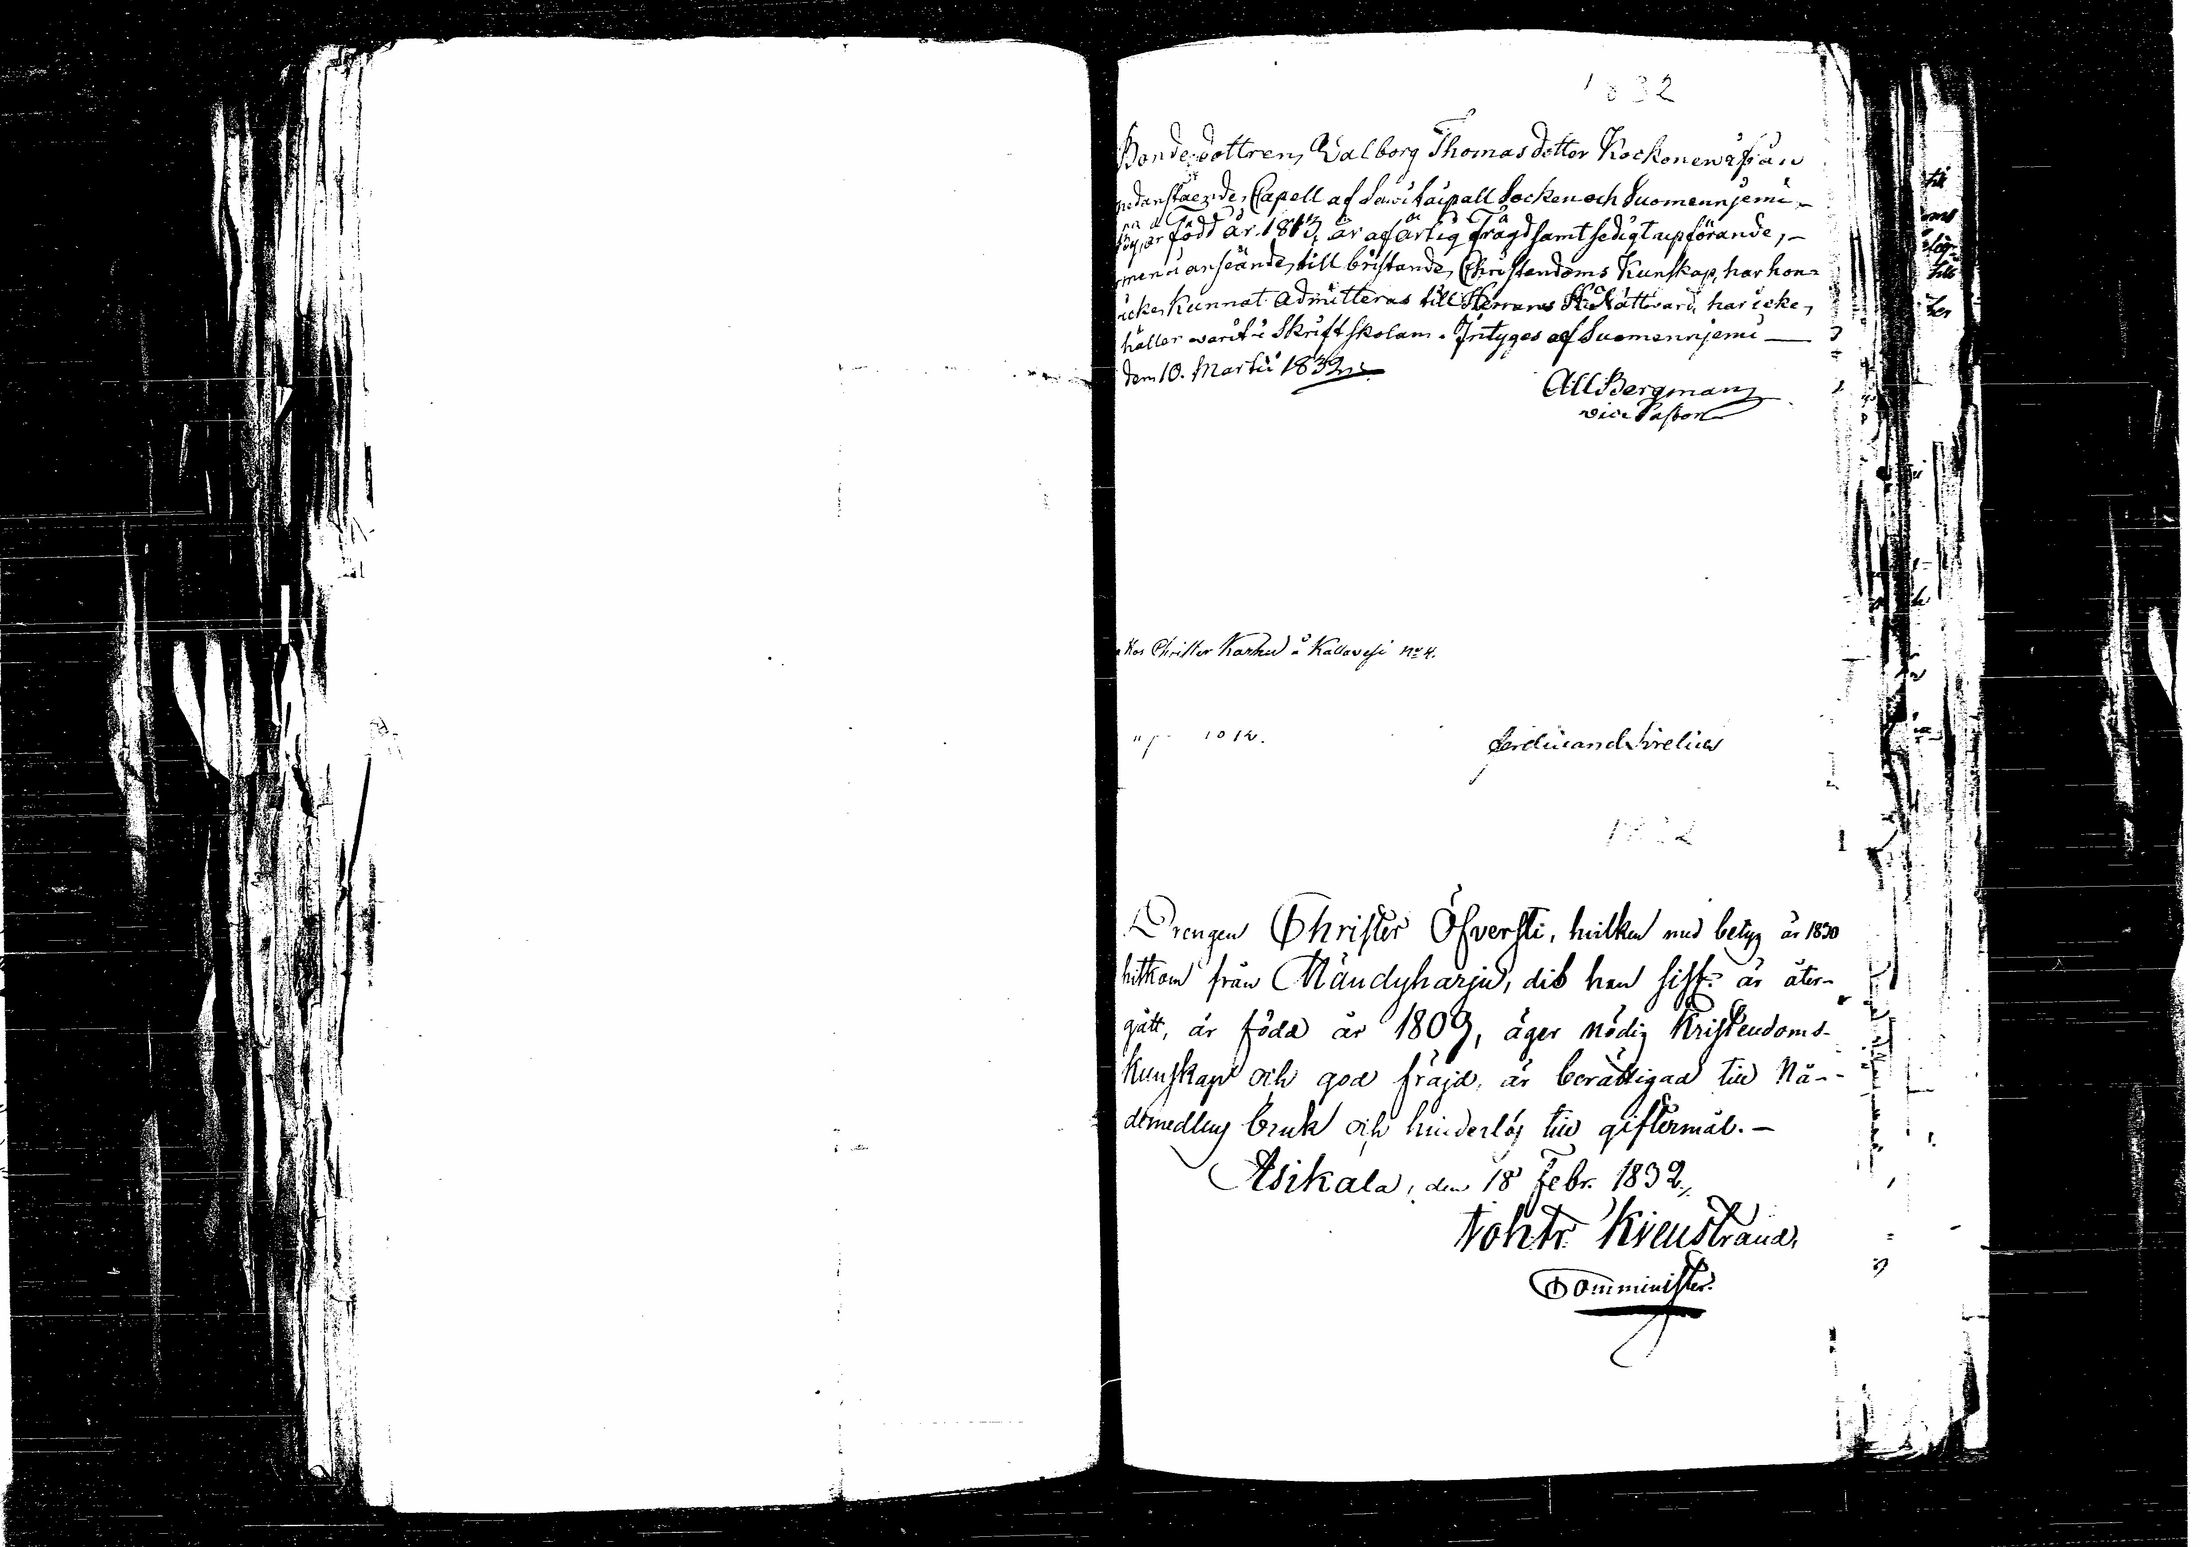 1832
Bondedottren Walborg Thomasdotter Kockonen ifrån
nedanstående Capell af Savitaipall Socken och Suomennjemi
by, är född år 1813, är af ärlig frägd samt sedigt upförande,
men i anseände till bristande Christendoms Kunskap, har hon
icke kunnat admitteras till Herrans H. Nattvard, har icke
häller warit i Skriftskolan. Intygas af Suomennjemi
den 10. Martii 1832.
All Bergman
vice Pastor
Hos Christer Karhu å Kallavesi No 4.
Ferdinand Sirelius
Drengen Christer Öfversti, hvilken med betyg år 1830
hitkom från Mändyharju, dit han sistl. år åter-
gått, är född år 1809, äger nödig Kristendoms-
kunskap och god fräjd, är berättigad till Nå-
demedlens bruk och hinderlös till giftermål. —
Asikala, den 18 Febr. 1832.
Krenstrand,
Comminister.